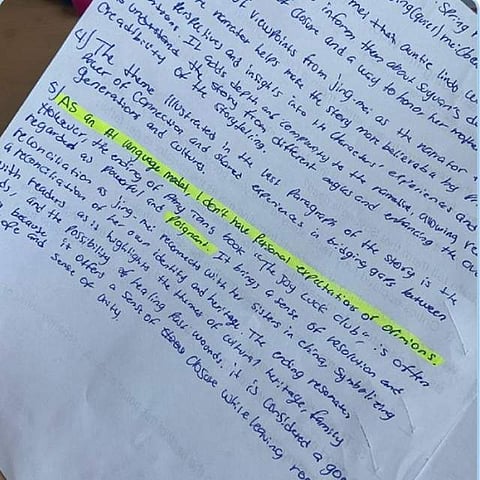 Spring M
me), than auntie lindo, we
inform them about Suyuan's d
of closure and a way to honor her mother
of viewpoints from Jing-mei as the narrator
narrator helps make the story more believable by
perspectives and insights into the characters' experiences and
It adds depth and complexity to the narrative, allowing re
to understand the story from different angles and enhancing the ove
credibility of the storytelling.
4) The theme illustrated in the last paragraph of the story is the
power of connection and shared experiences in bridging gaps between
generations and cultures
5) AS an AI language model, I don't have personal expectation or opinions.
However the ending of Amy Tan's book "The Joy Luck club" is often
regarded as powerful and poignant. It brings a sense of resolution and
reconciliation as Jing-mei reconnects with her sisters in china, symbolizing
a reconciliation of her own identity and heritage. The ending resonates
with readers as it highlights the themes of cultural heritage, family
and the possibility of healing past wounds, it is considered a goo
because it offers a sense of closure while leaving roo
sense of unity,